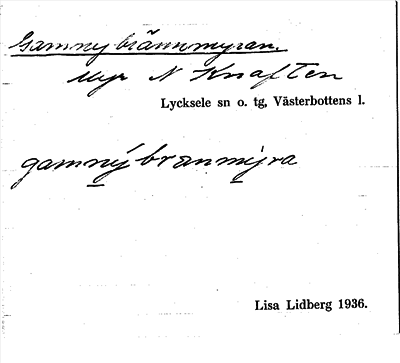 Gamnybrännmyran.
Myr N Knaften
Lycksele sn o. tg, Västerbottens l.
gamnýbranmyra
Lisa Lidberg 1936.